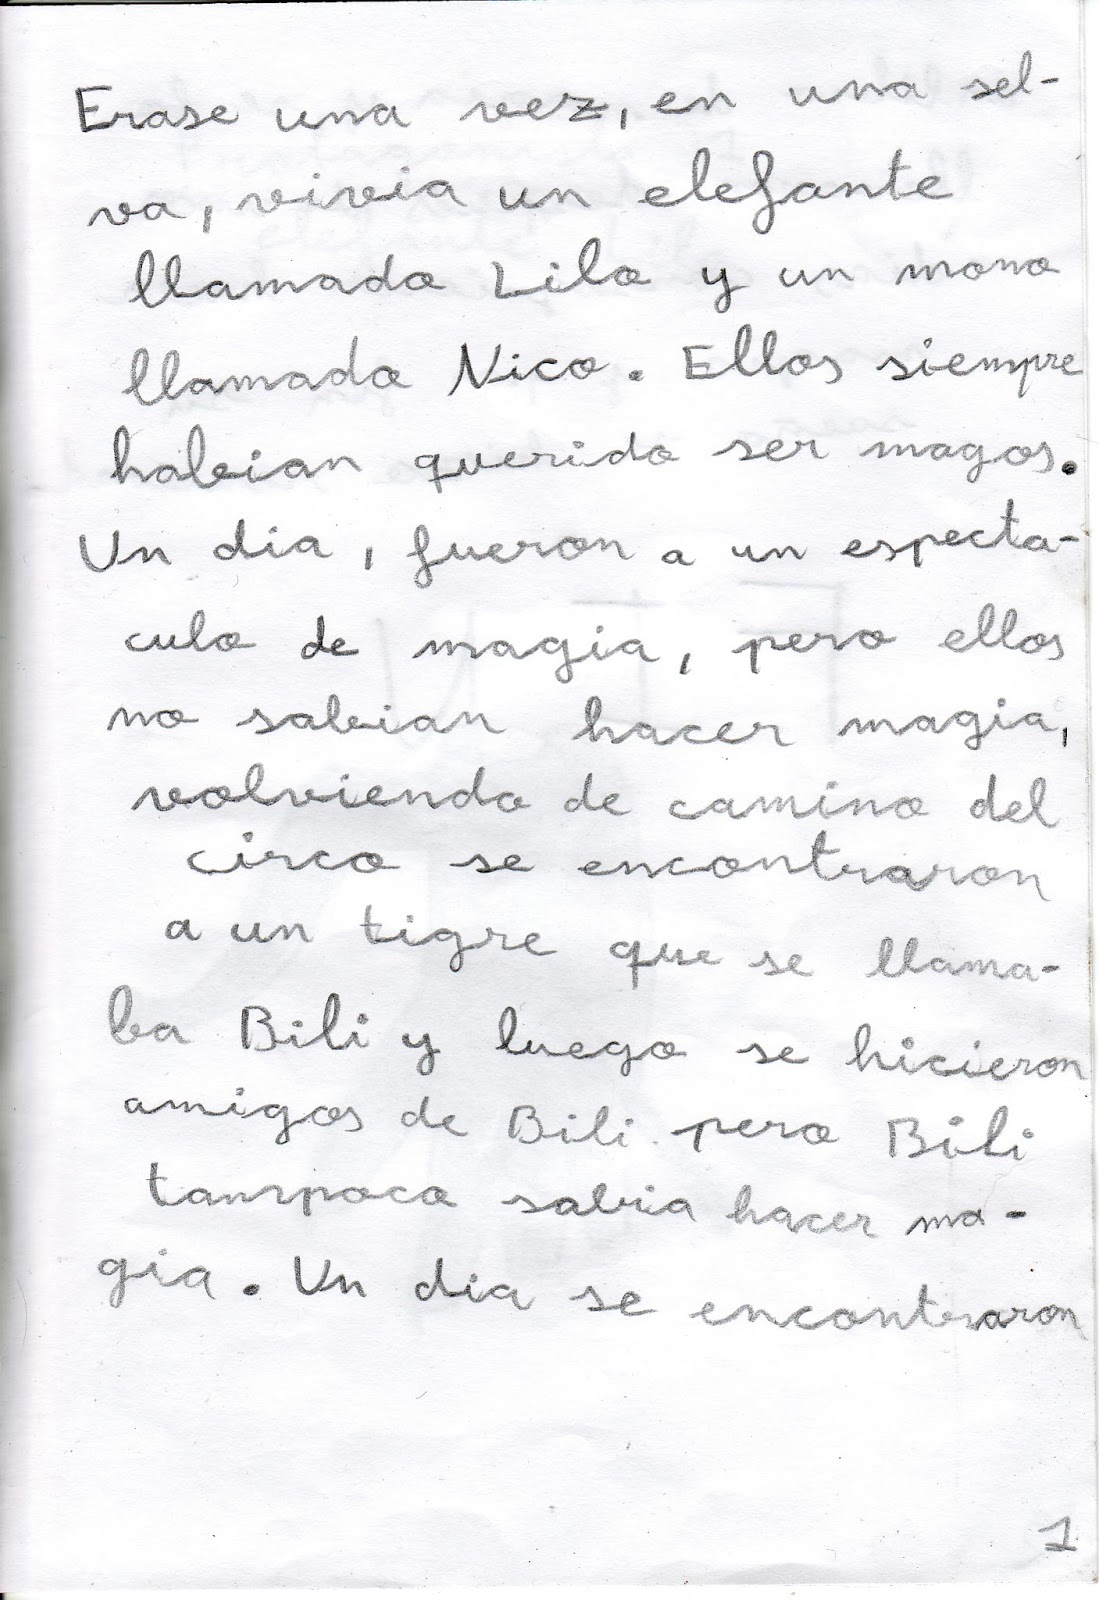 Erase una vez, en una sel-
va, vivia un elefante
llamado Lilo y un mono
llamado Nico. Ellos siempre
habian querido ser magos.
Un dia, fueron a un especta-
culo de magia, pero ellos
no sabian hacer magia,
volviendo de camino del
circo se encontraron
a un tigre que se llama-
ba Bili y luego se hicieron
amigos de Bili. pero Bili
tampoco sabia hacer ma-
gia. Un dia se encontraron
1